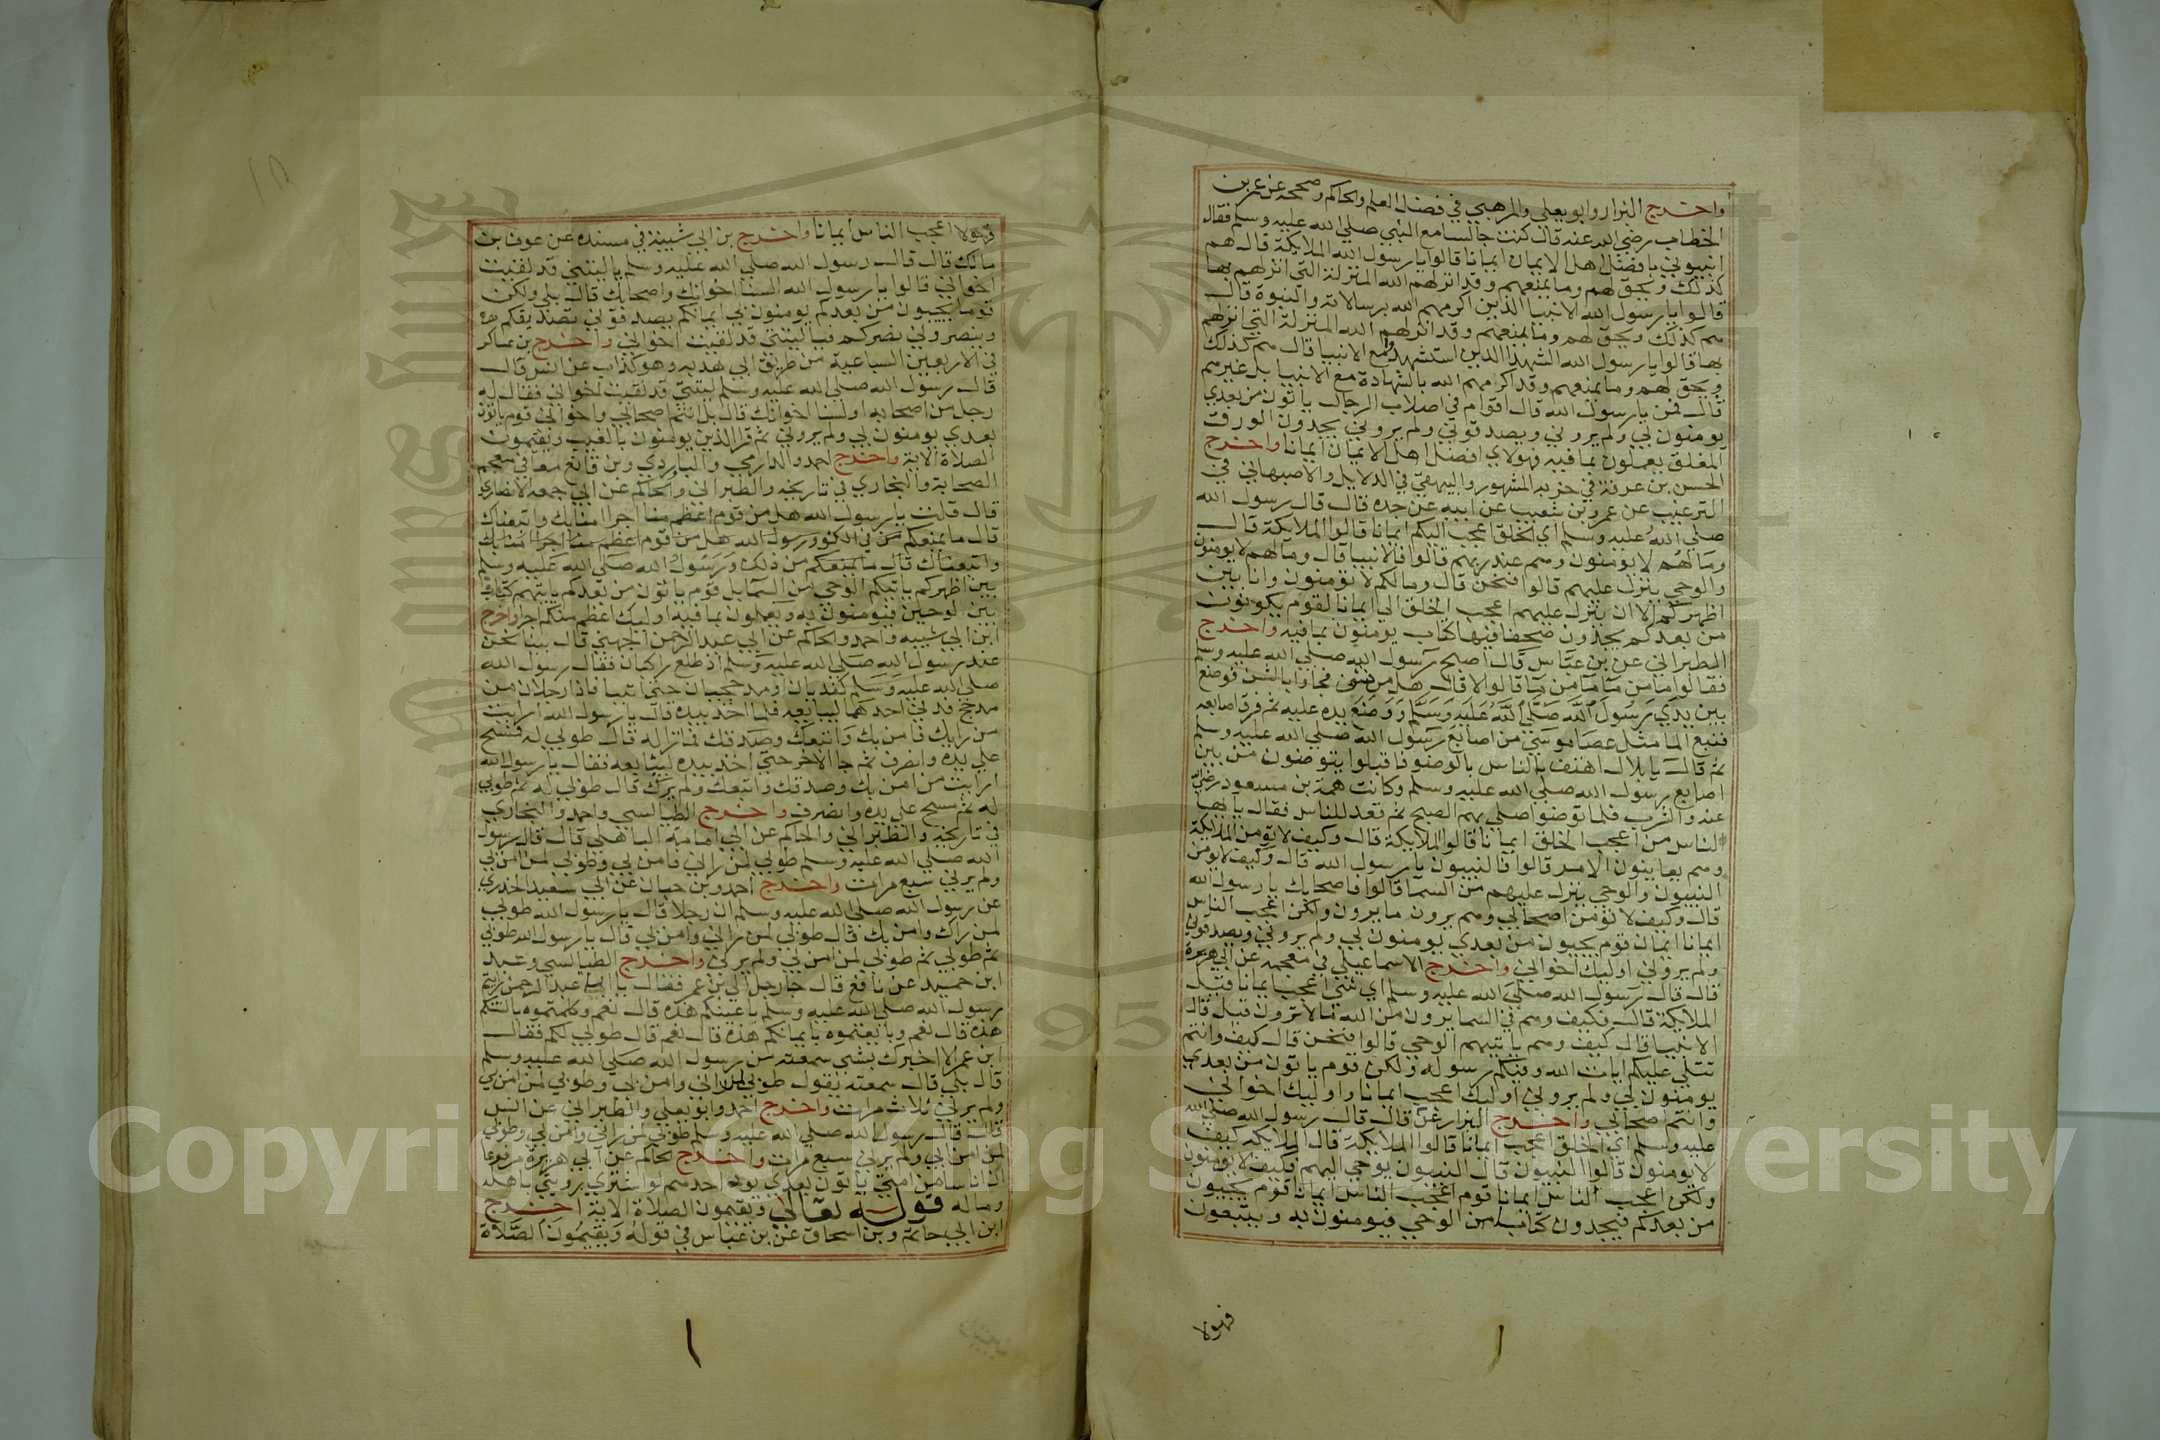 واخرج البزار وابو يعلي والمرهبي في فضل العلم والحاكم وصححه عن عمر بن
الخطاب رضي الله عنه قال كنت جالسا مع النبي صلي الله عليه وسلم فقال
انبيوني بافضل اهل الايمان ايمانا قالوا يا رسول الله الملايكة قال هم
كذلك ويحق لهم وما يمنعهم وقد انزلهم الله المنزلة التي انزلهم بها
قالوا يا رسول الله الانبيا الذين اكرمهم الله برسالاته والنبوة قال
هم كذلك ويحق لهم وما يمنعهم وقد انزلهم الله المنزلة التي انزلهم
بها قالوا يا رسول الله الشهدا الذين استشهدوا مع الانبيا قال هم كذلك
ويحق لهم وما يمنعهم وقد اكرمهم الله بالشهادة مع الانبيا بل غيرهم
قالوا فمن يا رسول الله قال اقوام في اصلاب الرجال ياتون من بعدي
يومنون بي ولم يروني ويصدقوني ولم يروني يجدون الورق
المعلق يعملون بما فيه فهولاي افضل اهل الايمان ايمانا واخرج
الحسن بن عرفة في حزبه المشهور والبيهقي في الدلايل والاصبهاني في
الترغيب عن عمرو بن شعيب عن ابيه عن جده قال قال رسول الله
صلي الله عليه وسلم اي الخلق اعجب اليكم ايمانا قالوا الملايكة قال
وما لهم لا يومنون وهم عند ربهم قالوا فالانبيا قال وما لهم لا يومنون
والوحي ينزل عليهم قالوا فنحن قال وما لكم لا تؤمنون وانا بين
اظهركم الا ان اعجب الخلق الي ايمانا لقوم يكونون
من بعدكم يجدون صحفا فيها كتاب يومنون بما فيه واخرج
الطبراني عن بن عباس قال اصبح رسول الله صلي الله عليه وسلم
فقالوا ما من ما قالوا لا قال هل من شن فجاوا بالشن فوضع
بين يدي رسول الله صلي الله عليه وسلم ووضع يده عليه ثم فرق اصابعه
فنبع الما مثل عصا موسي من اصابع رسول الله صلي الله عليه وسلم
ثم قال يا بلال اهتف بالناس بالوضو فاقبلوا يتوضون من بين
اصابع رسول الله صلي الله عليه وسلم وكانت همة بن مسعود رضي الله
عنه والشرب فلما توضوا صلي بهم الصبح ثم قعد للناس فقال يا ايها
الناس من اعجب الخلق ايمانا قالوا الملايكة قال وكيف لا تومن الملايكة
وهم يعاينون الامر قالوا فالنبيون يا رسول الله قال وكيف لا يومن
النبيون والوحي ينزل عليهم من السما قالوا فاصحابك يا رسول الله
قال وكيف لا تؤمن اصحابي وهم يرون ما يرون ولكن اعجب الناس
ايمانا ايمان قوم يجيون من بعدي يومنون بي ولم يروني ويصدقوني
ولم يروني اوليك اخواني واخرج الاسماعيلي في معجمه عن ابي هريرة
قال قال رسول الله صلي الله عليه وسلم اي شي اعجب ايمانا قيل
الملايكة قال وكيف وهم في السما يرون من الله مالا ترون قيل قال
الانبيا قال كيف وهم ياتيهم الوحي قالوا فنحن قال كيف وانتم
تتلي عليكم ايات الله وفيكم رسوله ولكن قوم ياتون من بعدي
يومنون بي ولم يروني اوليك اعجب ايمانا واوليك اخواني
وانتم اصحابي واخرج البزار عن قال قال رسول الله صلي الله
عليه وسلم اي الخلق اعجب ايمانا قالوا الملايكة قال الملايكة كيف
لا يومنون قالوا النبيون قال النبيون يوحي اليهم فكيف لا يومنون
ولكن اعجب الناس ايمانا قوم يجيون
من بعدكم فيجدون كتابا من الوحي فيومنون به ويتبعون
فهولا
فهولا اعجب الناس ايمانا واخرج بن ابي شيبة في مسنده عن عوف بن
مالك قال قال رسول الله صلي الله عليه وسلم يا ليتني قد لقيت
اخواني قالوا يا رسول الله السنا اخوانك واصحابك قال بلي ولكن
قوما يجيون من بعدكم يومنون بي ايمانكم ويصدقوني تصديقكم
وينصروني نصركم فيا ليتني قد لقيت اخواني واخرج بن عساكر
في الاربعين السباعية من طريق ابي هدبه وهو كذاب عن انس قال
قال رسول الله صلي الله عليه وسلم ليتني قد لقيت اخواني فقال له
رجل من اصحابه اولسنا اخوانك قال بل انتم اصحابي واخواني قوم ياتون
بعدي يومنون بي ولم يروني ثم قرا الذين يومنون بالغيب ويقيمون
الصلاة الاية واخرج احمد والدارمي والباوردي وبن قانع معا في معجم
الصحابة والبخاري في تاريخه والطبراني والحاكم عن ابي جمعه الانصاري
قال قلت يا رسول الله هل من قوم اعظم منا اجرا امنا بك واتبعناك
قال ما يمنعكم
واتبعناك قال ما يمنعكم من ذلك ورسول الله صلي الله عليه وسلم
بين اظهركم ياتيكم الوحي من السما بل قوم ياتون من بعدكم ياتيهم كتاب
بين لوحين فيومنون به ويعملون بما فيه اوليك اعظم منكم اجرا واخرج
ابن ابي شيبه واحمد والحاكم عن ابي عبد الرحمن الجهني قال بينا نحن
عند رسول الله صلي الله عليه وسلم اذ طلع راكبان فقال رسول الله
صلي الله عليه وسلم كنديان او مذحجيان حتي اتيا فاذا رجلان من
مذحج فدني احدهما ليبايعه فلما اخذ بيده قال يا رسول الله ارايت
من راك فامن بك واتبعك وصدقك فماذا له قال طوبي له فمسح
علي يده وانصرف ثم جا الاخر حتي اخذ بيده ليبايعه فقال يا رسول الله
ارايت من امن بك وصدقك واتبعك ولم يرك قال طوبي له ثم طوبي
له ثم مسح علي يده وانصرف واخرج الطيالسي واحمد والبخاري
في تاريخه والطبراني والحاكم عن ابي امامة الباهلي قال قال رسول
الله صلي الله عليه وسلم طوبي لمن راني وامن بي وطوبي لمن امن بي
ولم يرني سبع مرات واخرج احمد وبن حبان عن ابي سعيد الخدري
عن رسول الله صلي الله عليه وسلم ان رجلا قال يا رسول الله طوبي
لمن راك وامن بك قال طوبي لمن راني وامن بي قال يا رسول الله طوبي
ثم طوبي ثم طوبي لمن امن بي ولم يرني واخرج الطيالسي وعبد
ابن حميد عن نافع قال جا رجل الي بن عمر فقال يا ابا عبد الرحمن رايتم
رسول الله صلي الله عليه وسلم باعينكم هذه قال نعم وكلمتموه بالسنتكم
هذه قال نعم وبايعتموه بايمانكم هذه قال نعم قال طوبي لكم فقال
ابن عمر الا اخبرك بشي سمعته من رسول الله صلي الله عليه وسلم
قال بلي قال سمعته يقول طوبي لمن راني وامن بي وطوبي لمن امن بي
ولم يرني ثلاث مرات واخرج احمد وابو يعلي والطبراني عن انس
قال قال رسول الله صلي الله عليه وسلم طوبي لمن راني وامن بي وطوبي
لمن امن بي ولم يرني سبع مرات واخرج الحاكم عن ابي هريرة مرفوعا
ان اناسا من امتي ياتون بعدي يود احدهم لو اشتري رويتي باهله
وماله قوله تعالي ويقيمون الصلاة الاية اخرج
ابن ابي حاتم وبن اسحاق عن بن عباس في قوله ويقيمون الصلاة
Copyright © King Saud University